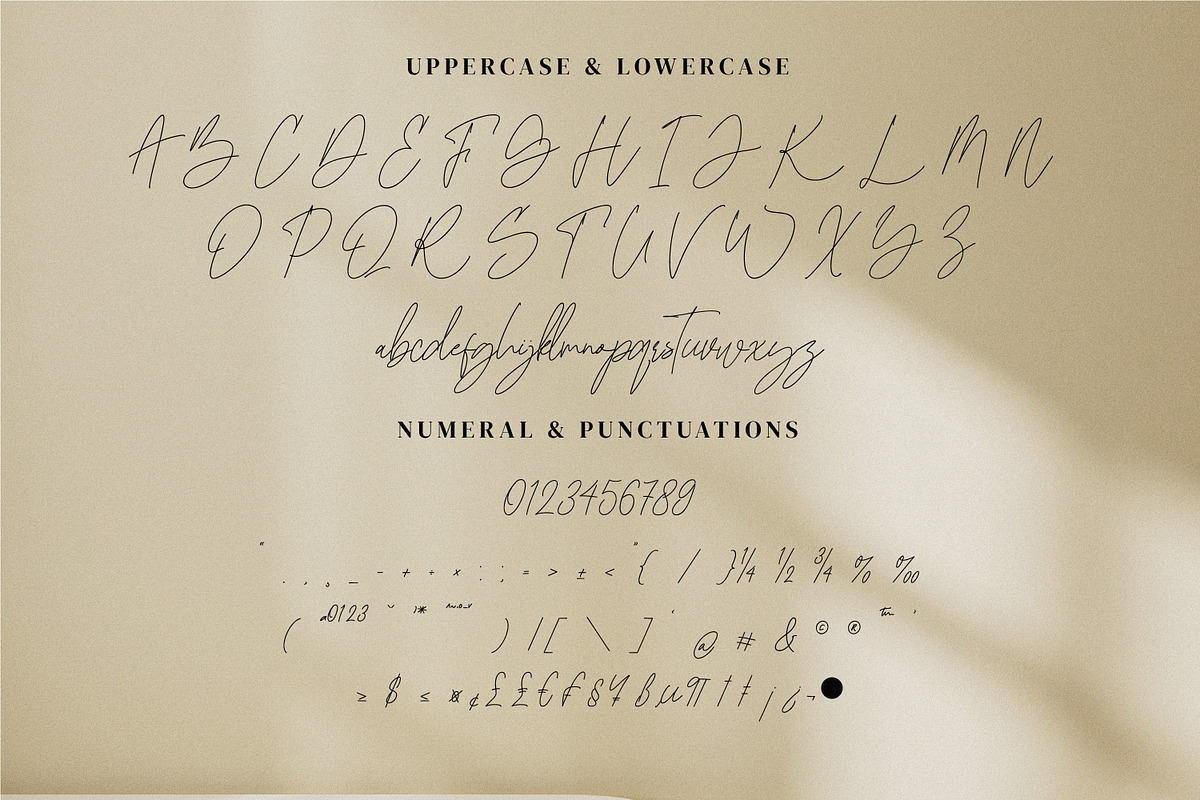 UPPERCASE & LOWERCASE
A B C D E F G H I J K L M N
O P Q R S T U V W X Y Z
abcdefghijklmnopqrstuvwxyz
NUMERAL & PUNCTUATIONS
0123456789
“ . , „ _ - + ÷ × : ; = > ± < ” { / } ¼ ½ ¾ % ‰
( ª0123 ) / [ \ ] ‘ @ # & © ® ™ ’
≥ $ ≤ ¤ ¢ £ € ƒ § ¥ ß µ π † ‡ ¡ ¿ ¬ ●